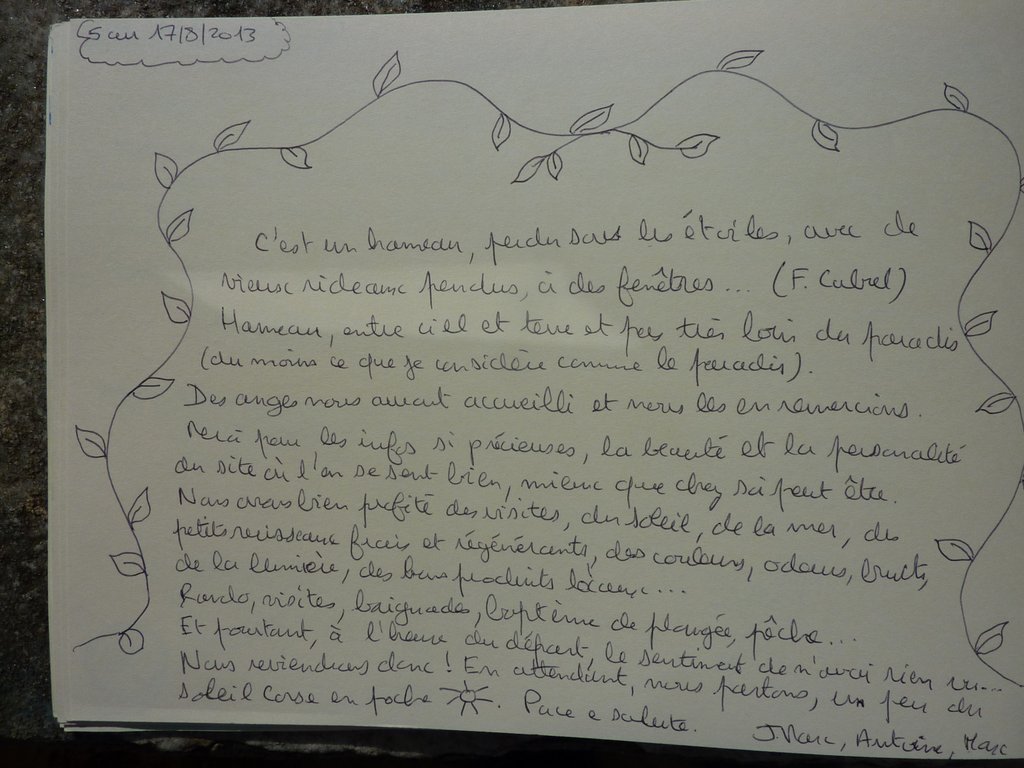 5 au 17/8/2013
C'est un hameau, perdu sous les étoiles, avec de
vieux rideaux pendus, à des fenêtres... (F. Cabrel)
Hameau, entre ciel et terre et pas très loin du paradis
(du moins ce que je considère comme le paradis).
Des anges nous auront accueilli et nous les en remercions.
Merci pour les infos si précieuses, la beauté et la personalité
du site où l'on se sent bien, mieux que chez soi peut être.
Nous avons bien profité des visites, du soleil, de la mer, des
petits ruisseaux frais et régénérants, des couleurs, odeurs, bruits,
de la lumière, des bons produits locaux...
Rando, visites, baignades, baptème de plongée, pêche...
Et pourtant, à l'heure du départ, le sentiment de n'avoir rien vu...
Nous reviendrons donc ! En attendant, nous partons, un peu du
soleil Corse en poche. Pace e salute.
JMarc, Antoine, Marc